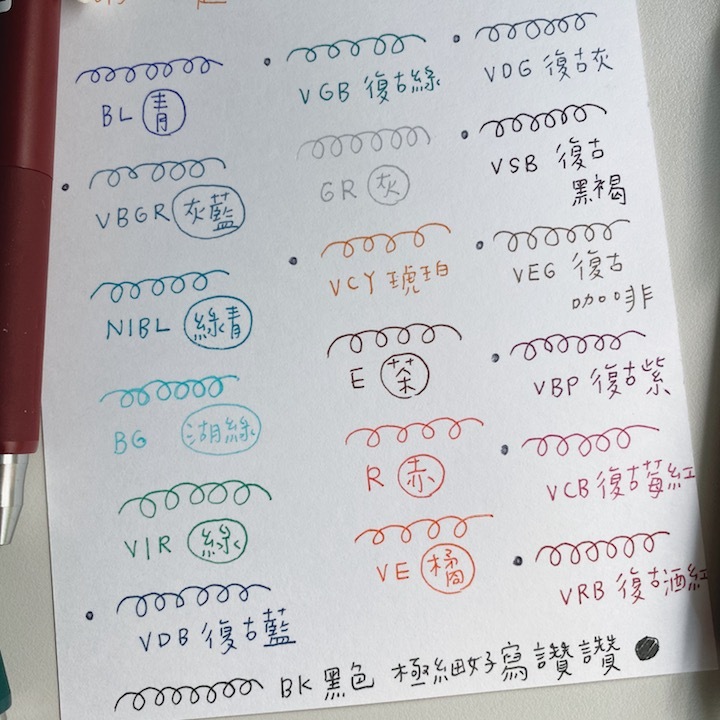 BL 青
VBGR 灰藍
NIBL 綠青
BG 湖綠
VIR 綠
VDB 復古藍
VGB 復古綠
GR 灰
VCY 琥珀
E 茶
R 赤
VE 橘
VDG 復古灰
VSB 復古
黑褐
VEG 復古
咖啡
VBP 復古紫
VCB 復古莓紅
VRB 復古酒紅
BK 黑色 極細好寫讚讚